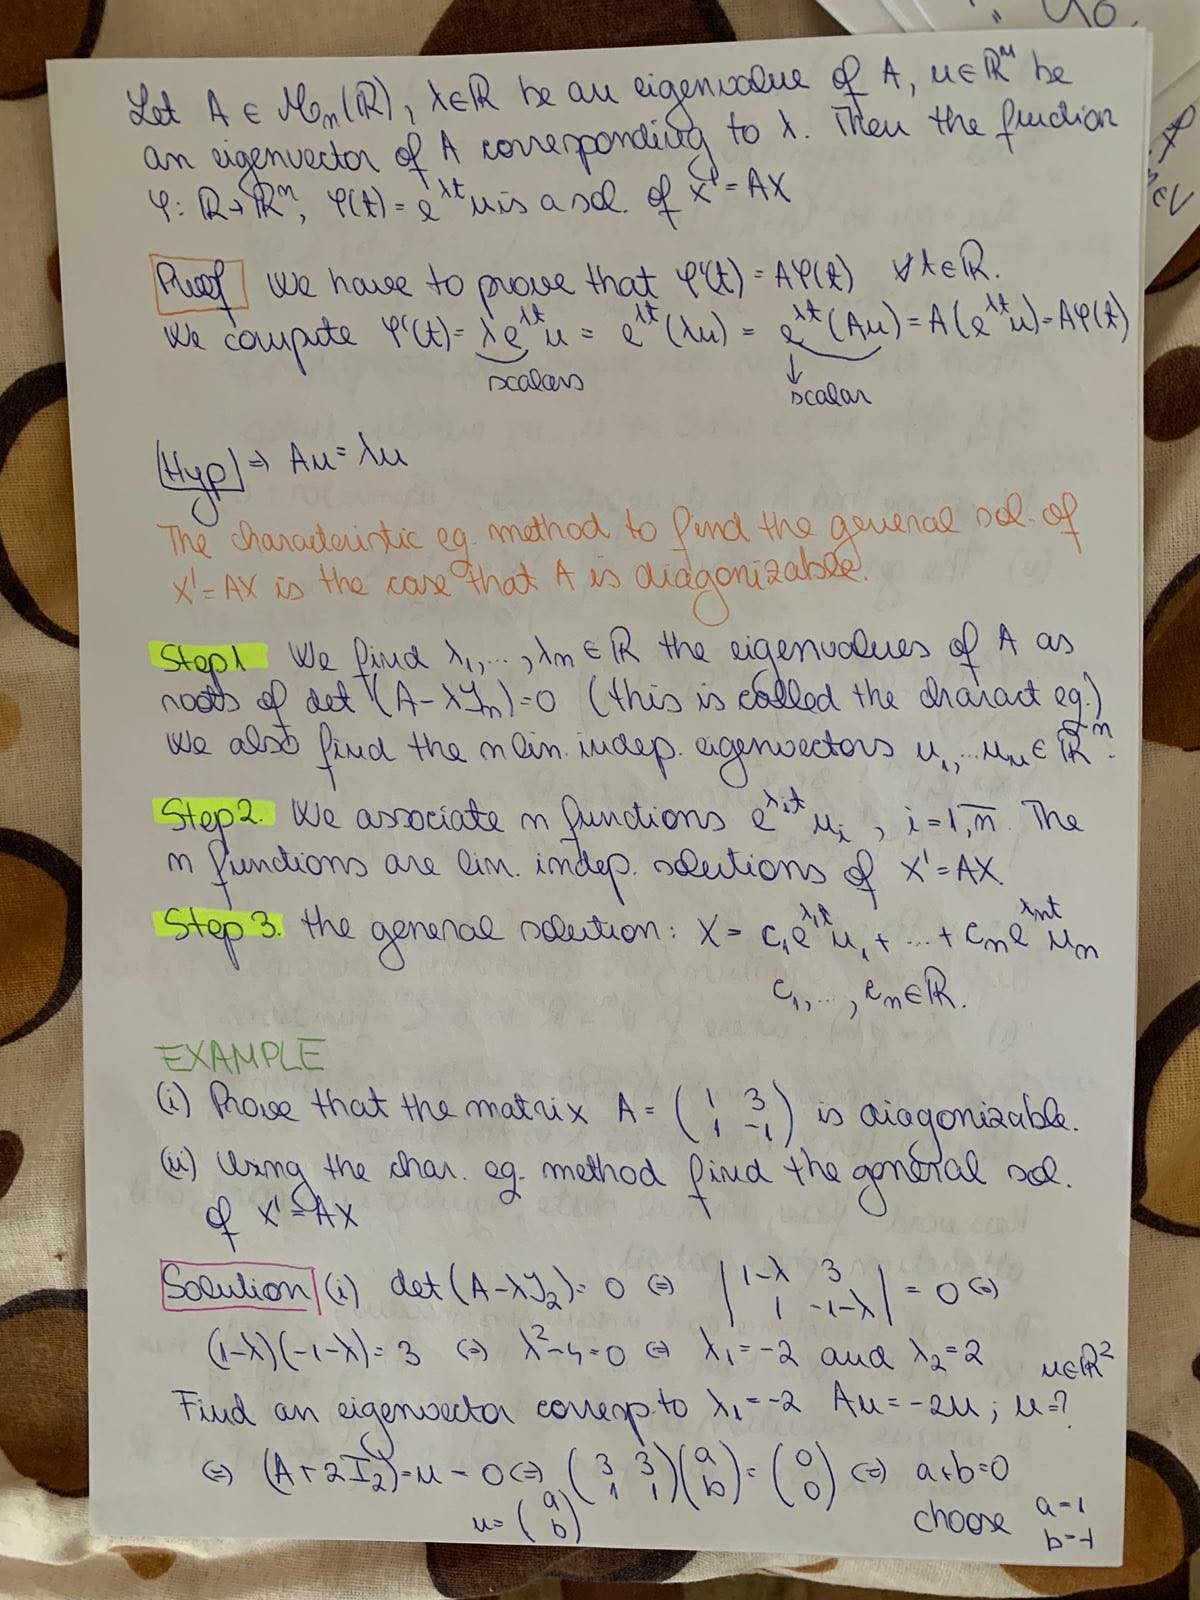 Let A ∈ Mn(ℝ), λ∈ℝ be an eigenvalue of A, u∈ℝⁿ be
an eigenvector of A corresponding to λ. Then the function
φ: ℝ→ℝⁿ, φ(t) = e^{λt}u is a sol. of X' = AX
Proof We have to prove that φ'(t) = Aφ(t) ∀t∈ℝ.
We compute φ'(t) = λe^{λt}u = e^{λt}(λu) = e^{λt}(Au) = A(e^{λt}u) = Aφ(t)
scalars ↓ scalar
[Hyp] ⇒ Au = λu
The characteristic eq. method to find the general sol. of
X' = AX is the case that A is diagonizable.
Step 1 We find λ₁,..., λn ∈ ℝ the eigenvalues of A as
roots of det (A-λJn)=0 (this is called the charact eq.)
We also find the n lin. indep. eigenvectors u₁,...un ∈ ℝⁿ.
Step 2. We associate n functions e^{λit} ui , i = 1,n̅. The
n functions are lin. indep. solutions of X' = AX.
Step 3. the general solution: X = c₁e^{λ₁t}u₁ + ... + cne^{λnt}un
c₁,..., cn∈ℝ.
EXAMPLE
(i) Prove that the matrix A = (1 3 1 -1) is diagonizable.
(ii) Using the char. eq. method find the general sol.
of X' = AX
Solution (i) det(A-λJ₂) = 0 ⇔ |1-λ 3 1 -1-λ| = 0 ⇔
(1-λ)(-1-λ) = 3 ⇔ λ²-4=0 ⇔ λ₁=-2 and λ₂=2
u∈ℝ²
Find an eigenvector corresp. to λ₁=-2 Au = -2u ; u=?
⇔ (A+2I₂)=u - 0 ⇔ (3 3 1 1)(a b) = (0 0) ⇔ a+b=0
u=(a b) choose a=1
b=-1
∈V